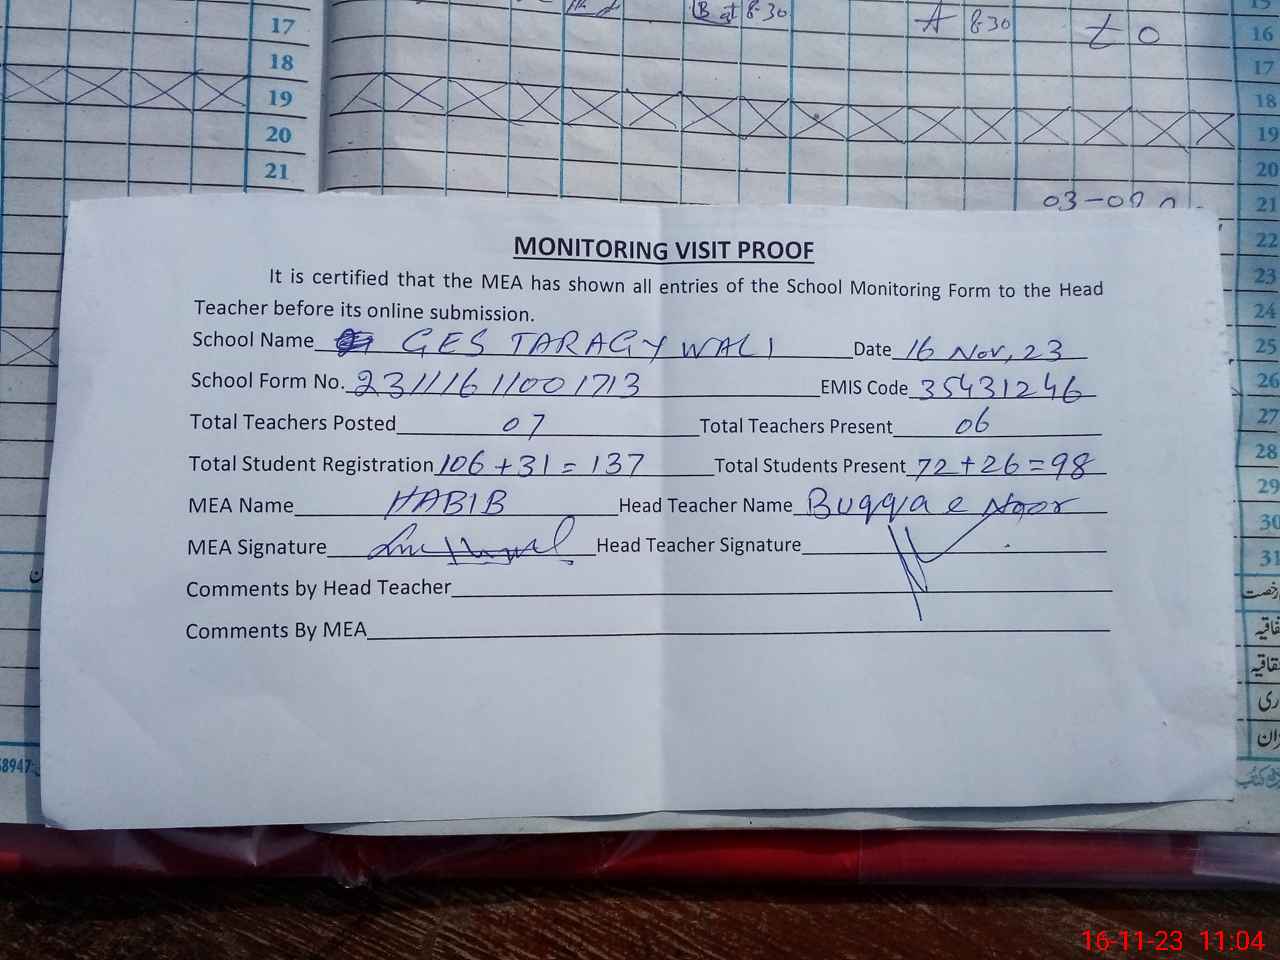 17
18
19
20
21
B at 8-30
A 8-30
16
17
18
19
20
21
22
23
24
25
26
27
28
29
30
31
MONITORING VISIT PROOF
It is certified that the MEA has shown all entries of the School Monitoring Form to the Head
Teacher before its online submission.
School Name GES TARAGY WALI Date 16 Nov, 23
School Form No. 231116 11001713 EMIS Code 35431246
Total Teachers Posted 07 Total Teachers Present 06
Total Student Registration 106 + 31 = 137 Total Students Present 72 + 26 = 98
MEA Name HABIB Head Teacher Name Buqqa e Noor
MEA Signature Head Teacher Signature
Comments by Head Teacher
Comments By MEA
58947
16-11-23 11:04